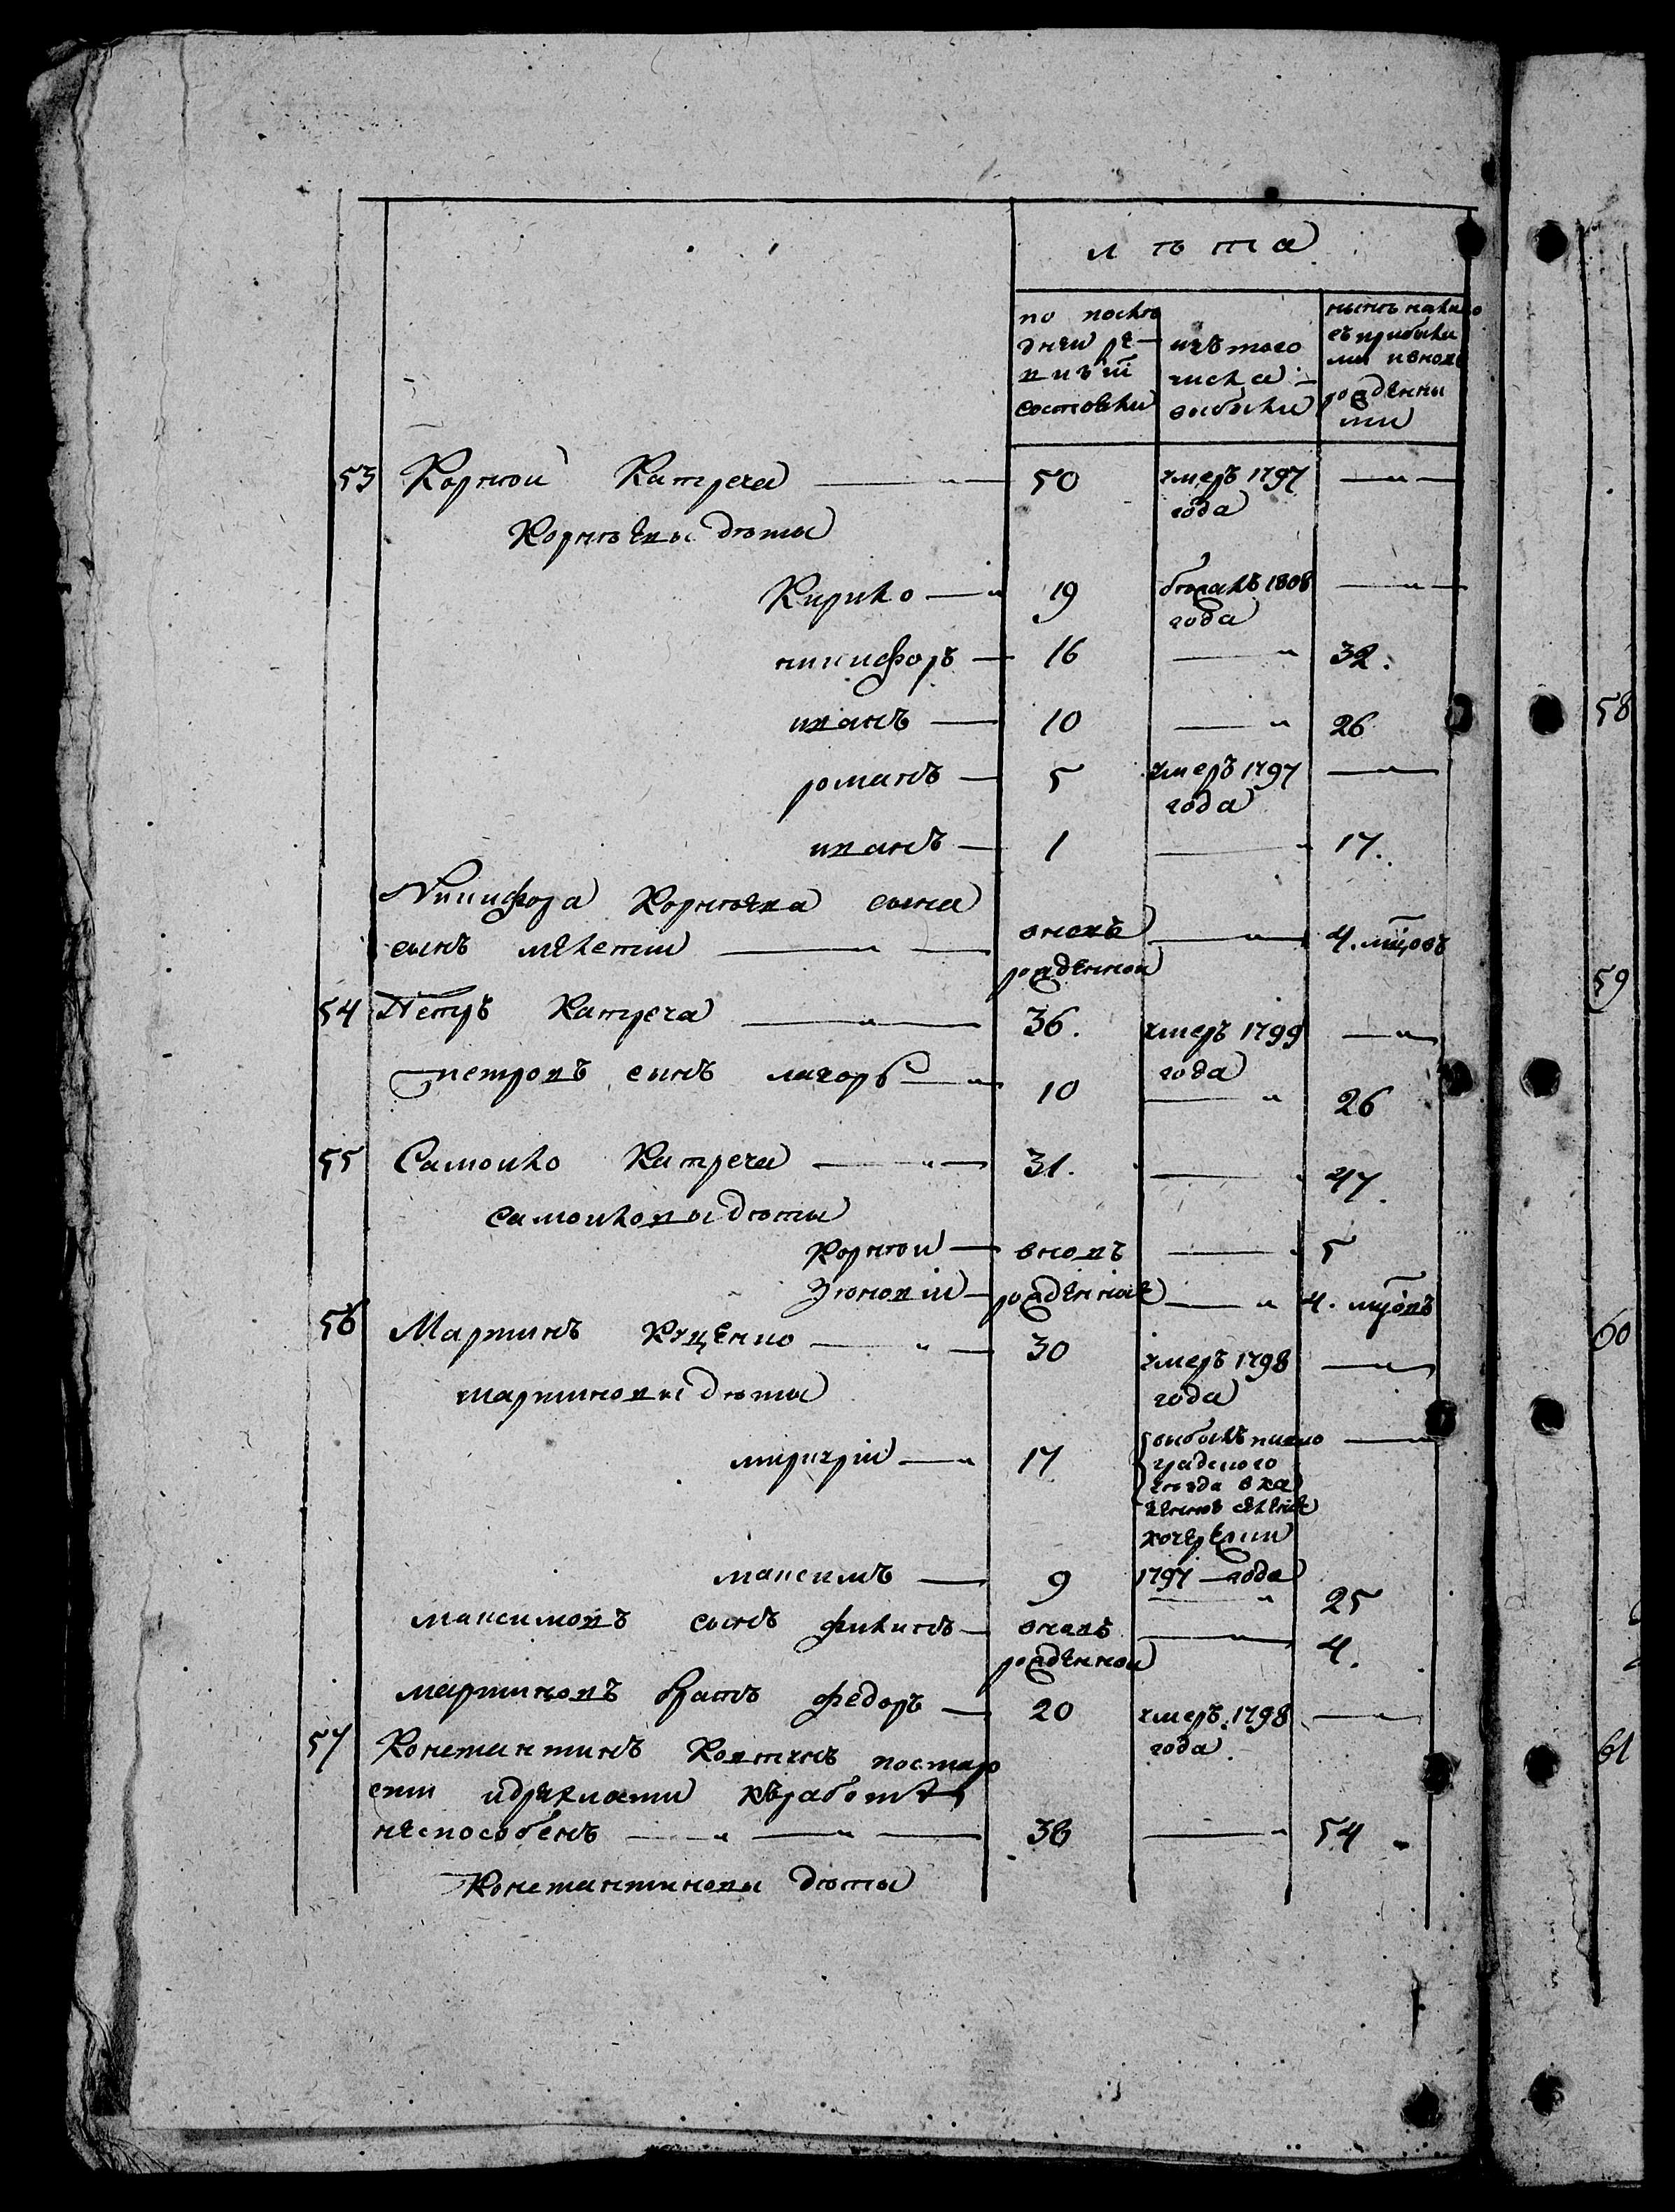 лѣта
по послѣ
дней ре-
визіи
состояли
изъ того
числа
выбыли
нынѣ налицо
съ прибылы
ми и вновь
рожденны
ми
53 Корней Катреча — 50 умеръ 1797 — " —
года
Корнѣевы дѣти
Кирило — " 19 бѣжалъ 1808 — " —
года
никифоръ — 16 — " 32.
иванъ — 10 — " 26
романъ — 5 умеръ 1797 — " —
года
иванъ — 1 — " 17.
Никифора Корнѣева сына
сынъ мелетий — " — вновь — " — 4. мцовъ
рожденной
54 Петръ Катреча — " — 36. умеръ 1799 — "
года
петровъ сынъ лазоръ — " — 10 — " 26
55 Самойло Катреча — " — 31. — " 47.
самойловы дѣти
Корней — вновь — " 5
Зѣновій — рожденные — " 4. мцовъ
56 Мартинъ Куценко — " — 30 умеръ 1798 — " —
года
мартиновы дѣти
миркурій — " 17 выбылъ —
градского
уезда в ка
зенное селение
1797 года
максимъ — 9 — " 25
максимовъ сынъ филипъ — вновь — " — 4.
рожденной
мартиновъ братъ федоръ — 20 умеръ 1798 — "
года
57 Константинъ Ковтунъ по старо
сти и дряхлости къ работѣ
неспособенъ — " — " — 38 — " 54
Константиновы дѣти
58
59
60
61